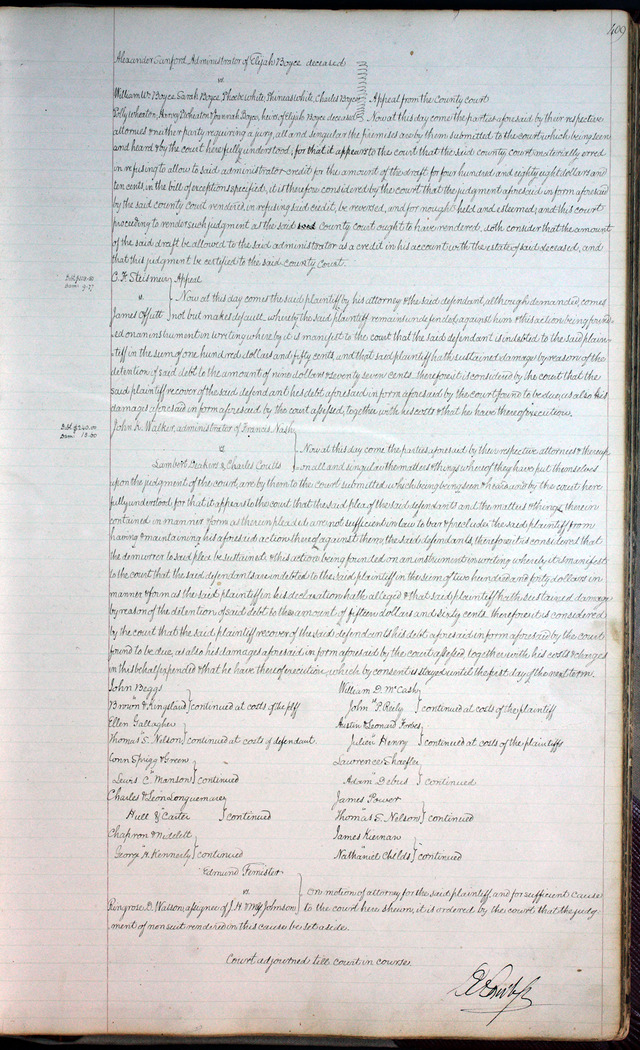 409
Alexander Sanford Administrator of Elijah Boyce deceased
vs
William W. Boyce, Sarah Boyce, Phoebe White, Phineas White, Charles Boyce, Appeal from the county court
Polly Wheaton, Harvey Wheaton & Hannah Boyce, heirs of Elijah Boyce deceased Now at this day come the parties aforesaid by their respective
attornies & neither party requiring a jury, all and singular the premises are by them submitted to the court which being seen
and heard & by the court here fully understood, for that it appears to the court that the said county court materially erred
in refusing to allow to said administrator credit for the amount of the draft for four hundred and eighty eight dollars and
ten cents, in the bill of exceptions specified, it is therefore considered by the court that the judgment aforesaid in form aforesaid
by the said county court rendered, in refusing said credit, be reversed, and for nought held and esteemed; and this court
proceeding to render such judgment as the said county court ought to have rendered, doth consider that the amount
of the said draft be allowed to the said administrator as a credit in his account with the estate of said deceased, and
that this judgment be certified to the said county court.
Appeal
vs. Now at this day comes the said plaintiff by his attorney & the said defendant, although demanded, comes
James not but makes default, whereby the said plaintiff remains undefended against him & this action being found-
ed on an instrument in writing whereby it is manifest to the court that the said defendant is indebted to the said plain-
tiff in the sum of one hundred dollars and fifty cents, and that said plaintiff hath sustained damages by reason of the
detention of said debt to the amount of nine dollars & seventy seven cents therefore it is considered by the court that the
said plaintiff recover of the said defendant his debt aforesaid in form aforesaid by the court found to be due, as also his
damages aforesaid in form aforesaid by the court assessed, together with his costs & that he have thereof execution.
Debt $240.00
Dam: 15.60
John K. Walker, administrator of Francis Nash
vs Now at this day come the parties aforesaid by their respective attornies & thereup-
Lambert & Charles Coutts on all and singular the matters & things whereof they have put themselves
upon the judgment of the court, are by them to the court submitted which being seen & heard and by the court here
fully understood for that it appears to the court that the said plea of the said defendants and the matters & things therein
contained in manner & form as therein pleaded are not sufficient in law to bar & preclude the said plaintiff from
having & maintaining his aforesaid action thereof against them, the said defendants, therefore it is considered that
the demurrer to said plea be sustained & this action being founded on an instrument in writing whereby it is manifest
to the court that the said defendants are indebted to the said plaintiff in the sum of two hundred and forty dollars in
manner & form as the said plaintiff in his declaration hath alleged & that said plaintiff hath sustained damage
by reason of the detention of said debt to the amount of fifteen dollars and sixty cents therefore it is considered
by the court that the said plaintiff recover of the said defendants his debt aforesaid in form aforesaid by the court
found to be due, as also his damages aforesaid in form aforesaid by the court assessed together with his costs & charges
in this behalf expended & that he have thereof execution, which by consent is stayed until the first day of the next term.
John Beggs
vs
Brown & Kingsland continued at costs of the plff
Ellen Gallagher
vs
Thomas S. Nelson continued at costs of defendant.
Conn Sprigg & Green
vs
Lewis C. Manson continued
Charles & Leon Longuemare
vs
Hull & Carter continued
Chapron & Nidelet
vs
George H. Kennerly continued
William D. McCash
vs
John P. Reily continued at costs of the plaintiff
Austin & Leonard Forbes
vs
Julien Henry continued at costs of the plaintiffs
Lawrence Shaefler
vs
Adam Debus continued
James Power
vs
Thomas S. Nelson continued
James Kiernan
vs
Nathaniel Childs continued
Edmund Fenister
vs. On motion of attorney for the said plaintiff, and for sufficient cause
Ringrose D. Watson, assignee of J. H. & Johnson to the court here shewn, it is ordered by the court that the judg-
ment of nonsuit rendered in this cause be set aside.
Court adjourned till court in course